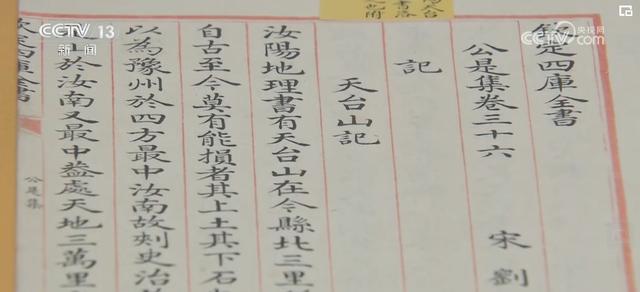 CCTV 13
新闻
央视网
CCTV.com
欽定四庫全書
公是集卷三十六 宋 劉
記
天台山記
汝陽地理書有天台山在今縣北三里
自古至今莫有能損者其上土其下石
以為豫州於四方最中汝南故刾史治
山於汝南又最中葢處天地三萬里
公是集